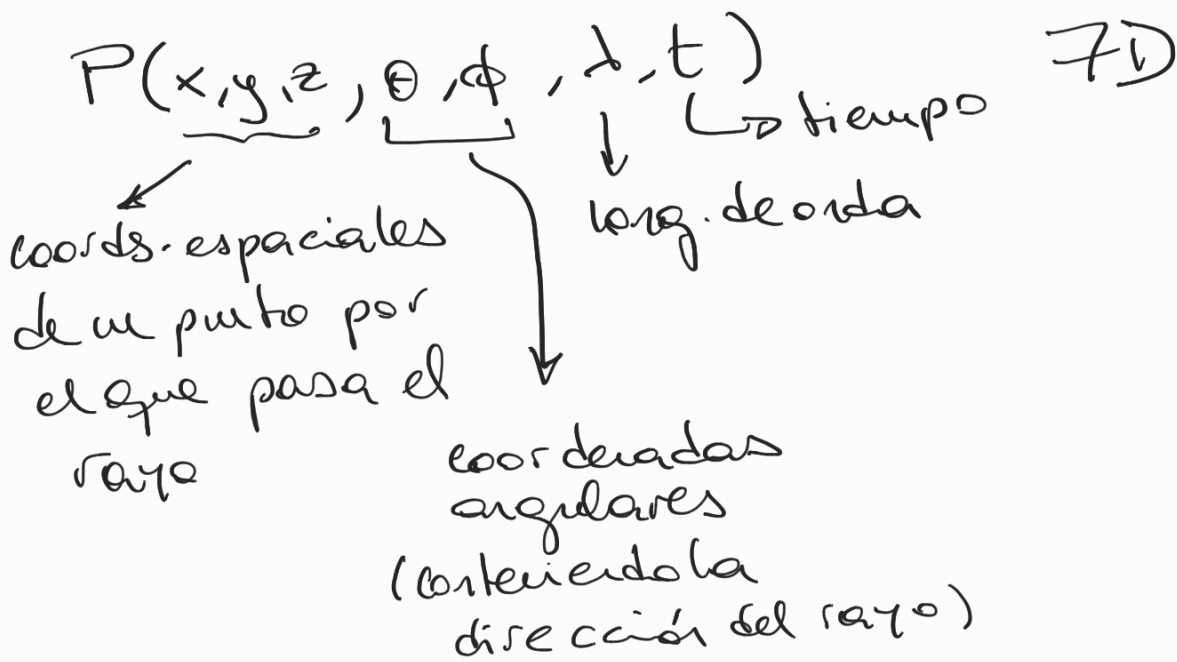 P(x,y,z, θ,ϕ, λ,t) 7D
tiempo
long. de onda
coords. espaciales
de un punto por
el que pasa el
rayo
coordenadas
angulares
(conteniendo la
dirección del rayo)